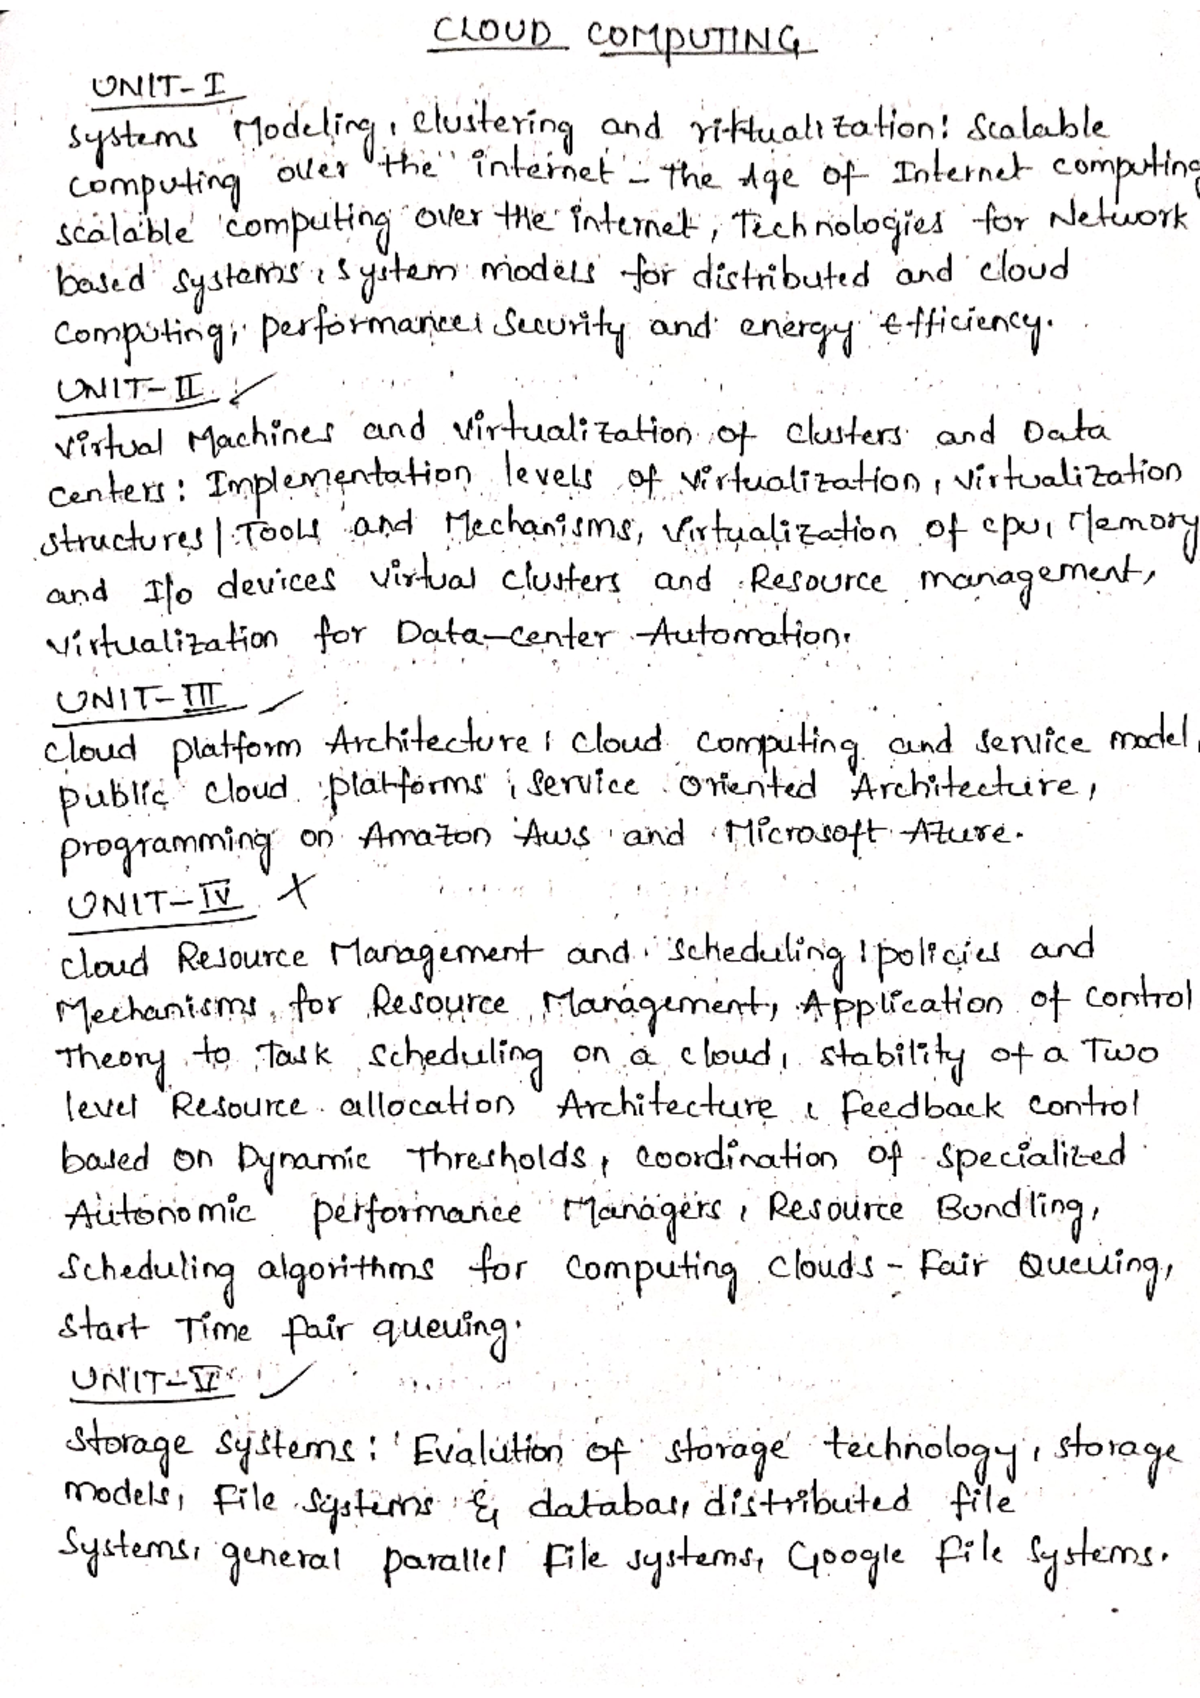 CLOUD COMPUTING
UNIT-I
Systems Modeling, clustering and virtualization: Scalable
computing over the internet - The Age of Internet computing
scalable computing over the internet, Technologies for Network
based systems, system models for distributed and cloud
Computing, performance, Security and energy Efficiency.
UNIT-II ✓
Virtual Machines and virtualization of clusters and Data
centers: Implementation levels of virtualization, virtualization
structures | Tools and Mechanisms, virtualization of cpu, Memory
and I/o devices virtual clusters and Resource management,
virtualization for Data-center Automation.
UNIT-III ✓
cloud platform Architecture: cloud computing and service model,
public cloud platforms, service oriented Architecture,
programming on Amazon Aws and Microsoft Azure.
UNIT-IV X
cloud Resource Management and scheduling: policies and
Mechanisms for Resource Management, Application of control
Theory to Task scheduling on a cloud, stability of a Two
level Resource allocation Architecture, feedback control
based on Dynamic Thresholds, coordination of specialized
Autonomic performance Managers, Resource Bundling,
Scheduling algorithms for computing clouds - Fair Queuing,
Start Time fair queuing.
UNIT-V ✓
Storage systems: Evalution of storage technology, storage
models, File systems & databas, distributed file
Systems, general parallel file systems, Google file Systems.